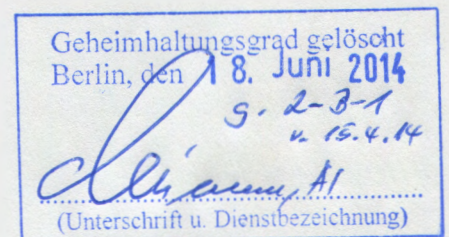 Geheimhaltungsgrad gelöscht
Berlin, den 18. Juni 2014
g. 2-B-1
v. 15.4.14
AI
(Unterschrift u. Dienstbezeichnung)